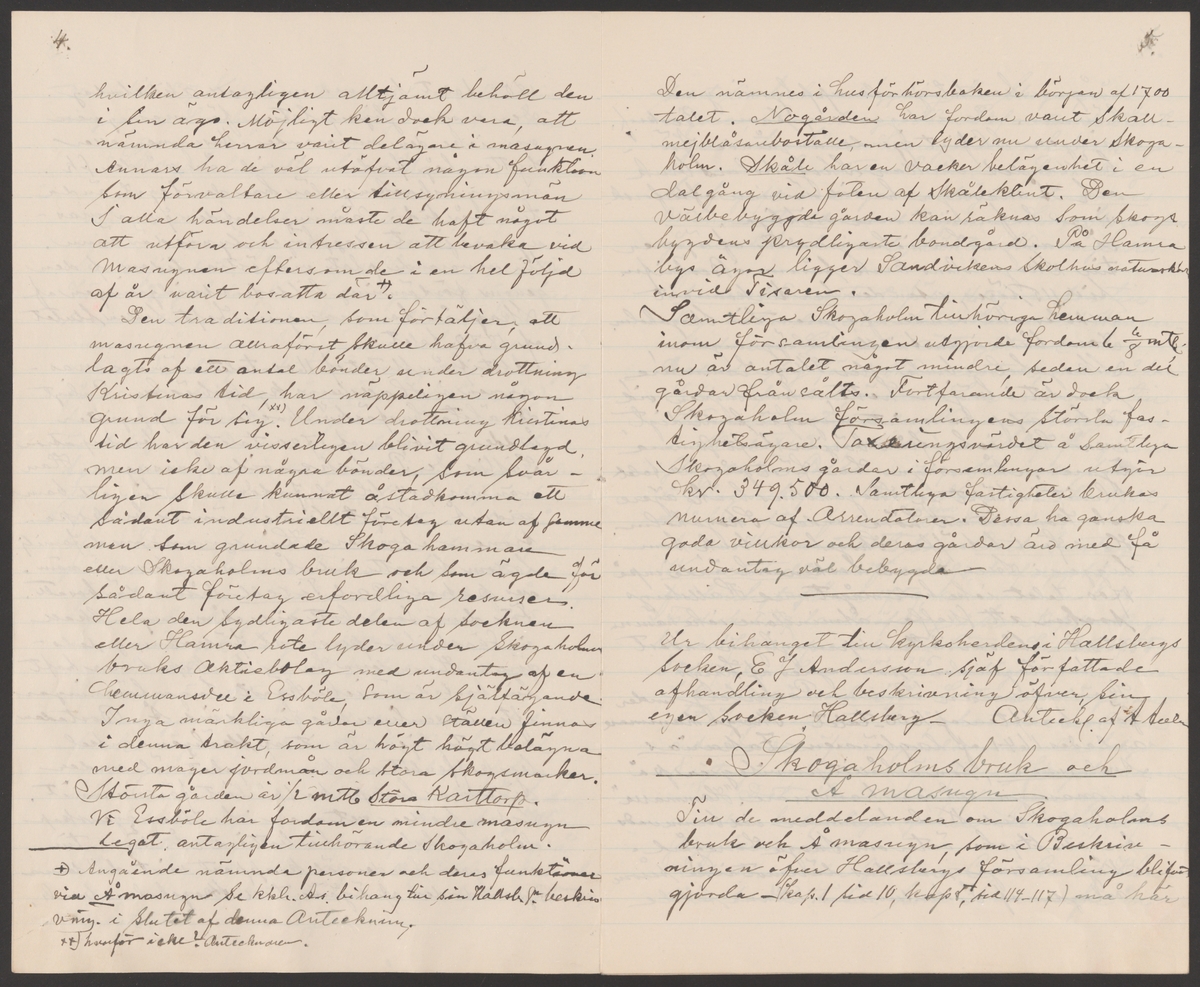 4.
hvilken antagligen alltjämt behöll den
i sin ägo. Möjligt kan dock vara, att
nämnda herrar varit delägare i masugnen,
annars ha de väl utöfvat någon funktion
som förvaltare eller tillsyningsmän
I alla händelser måste de haft något
att utföra och intressen att bevaka vid
masugnen eftersom de i en hel följd
af år varit bosatta där +).
Den traditionen, som förtäljer, att
masugnen allraförst skulle hafva grund-
lagts af ett antal bönder under drottning
Kristinas tid, har näppeligen någon
grund för sig ++). Under drottning Kristinas
tid har den visserligen blivit grundlagd,
men icke af några bönder, som svår-
ligen skulle kunnat åstadkomma ett
sådant industriellt företag utan af samme
men som grundade Skogahammare
eller Skogaholms bruk och som ägde för
sådant företag erfordliga resurser.
Hela den sydligaste delen af socknen
eller Hamra rote lyder under Skogaholms
bruks Aktiebolag med undantag af en
hemmansdel i Essböle, som är självägande
Inga märkliga gårdar eller ställen finnas
i denna trakt, som är högt högt belägna
med mager jordmån och stora skogsmarker.
Största gården är 1/2 mtl Stora Karttorp.
Vi Essböle har fordom en mindre masugn
legat, antagligen tillhörande Skogaholm.
+) Angående nämnda personer och deras funktioner
vid Å masugn se kkh. As. bihang till sin Hallsb. beskriv
vning. i slutet af denna Anteckning.
++) hvarför icke? Antecknaren.
5.
Den nämnes i husförhörsboken i början af 1700
talet. Nogården har fordom varit Skall-
mejblåsareboställe, men lyder nu under Skoga-
holm. Skåle har en vacker belägenhet i en
dalgång vid foten af Skåleklint. Den
välbebyggda gården kan räknas som skogs
bygdens prydligaste bondgård. På Hamra
bys ägor ligger Sandvikens Skolhus naturskönt
invid Tisaren.
Samtliga Skogaholm tillhöriga hemman
inom församlingen utgjorde fordom 6 mtl.
nu är antalet något mindre, sedan en del
gårdar frånsålts. Fortfarande är dock
Skogaholm församlingens största fas-
tighetsägare. Taxeringsvärdet å samtliga
Skogaholms gårdar i församlingar utgör
kr. 349.500. Samtliga fastigheter brukas
numera af Arrendatorer. Dessa ha ganska
goda villkor och deras gårdar äro med få
undantag väl bebygda
Ur bihanget till kyrkoherdens i Hallsbergs
socken, E J Andersson själf författade
afhandling och beskrivning öfver sin
egen socken Hallsberg- Anteckn. af A
Skogaholms bruk och
Å masugn
Till de meddelanden om Skogaholms
bruk och Å masugn, som i Beskriv-
ningen öfver Hallsbergs församling blifvit
gjorda - (kap. 1 sid 10, kap 5, sid 114-117) må här